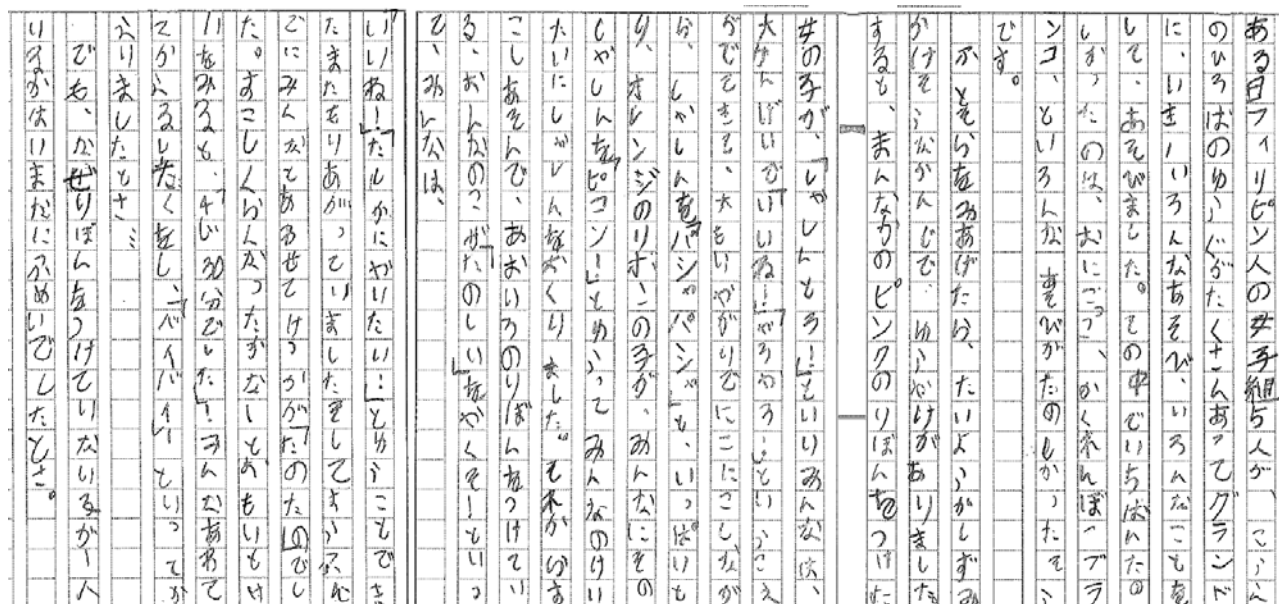 ある日フィリピン人の女子組5人が、こうえん
のひろばのゆうぐがたくさんあってグランド
に、いき、いろんなあそび、いろんなことを
して、あそびました。その中でいちばんたの
しかったのは、おにごっこ、かくれんぼ、ブラ
ンコ、といろんなあそびがたのしかったそう
です。
ふとそらをみあげたら、たいようがしずみ
かけそうなかんじで、ゆうやけがありました
すると、まんなかのピンクのりぼんをつけた
女の子が、「しゃしんとろー！」といいみんなは、
大さんせいで「いいね！」「やろやろー」というこえ
がでてきて、犬もいやがりでにこにこしなが
ら、しゃしんを「パシャパシャ」と、いっぱいと
り、オレンジのリボンの子が、みんなにその
しゃしんを「ピコン！」とゆうってみんなのけい
たいにしゃしんをおくりました。それからす
こしあそんで、あおいろのりぼんをつけてい
る、おんなのこが「たのしいをやくそー！といっ
て、みんなは、
いいね！」「たしかにやりたい！」とゆうことでさ
たまたもりあがっていましたそしてようふく
でにみんなともあわせてけっかが「たの」ので
た。すこしくらくなったかなしとおもいとけ
いをみると、「4じ30分でした！」みんなあわて
てかえるしたくをし、「バイバイー」といってか
えりましたとさ…
でも、なぜりぼんをつけていないるが一人
いるかはいまだにふめいでしたとさ。